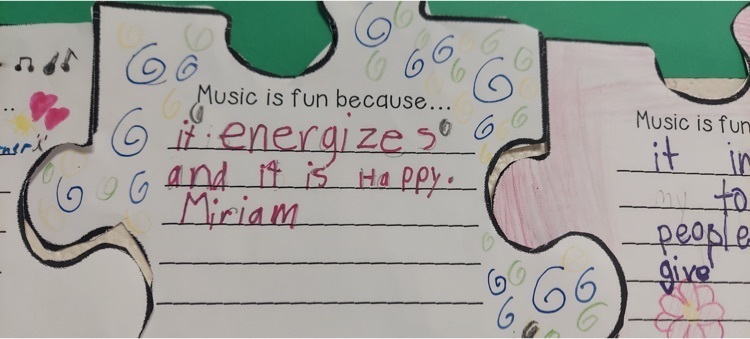 Music is fun because...
it energizes
and it is Happy.
Miriam
Music is fun
it in
to
people
give